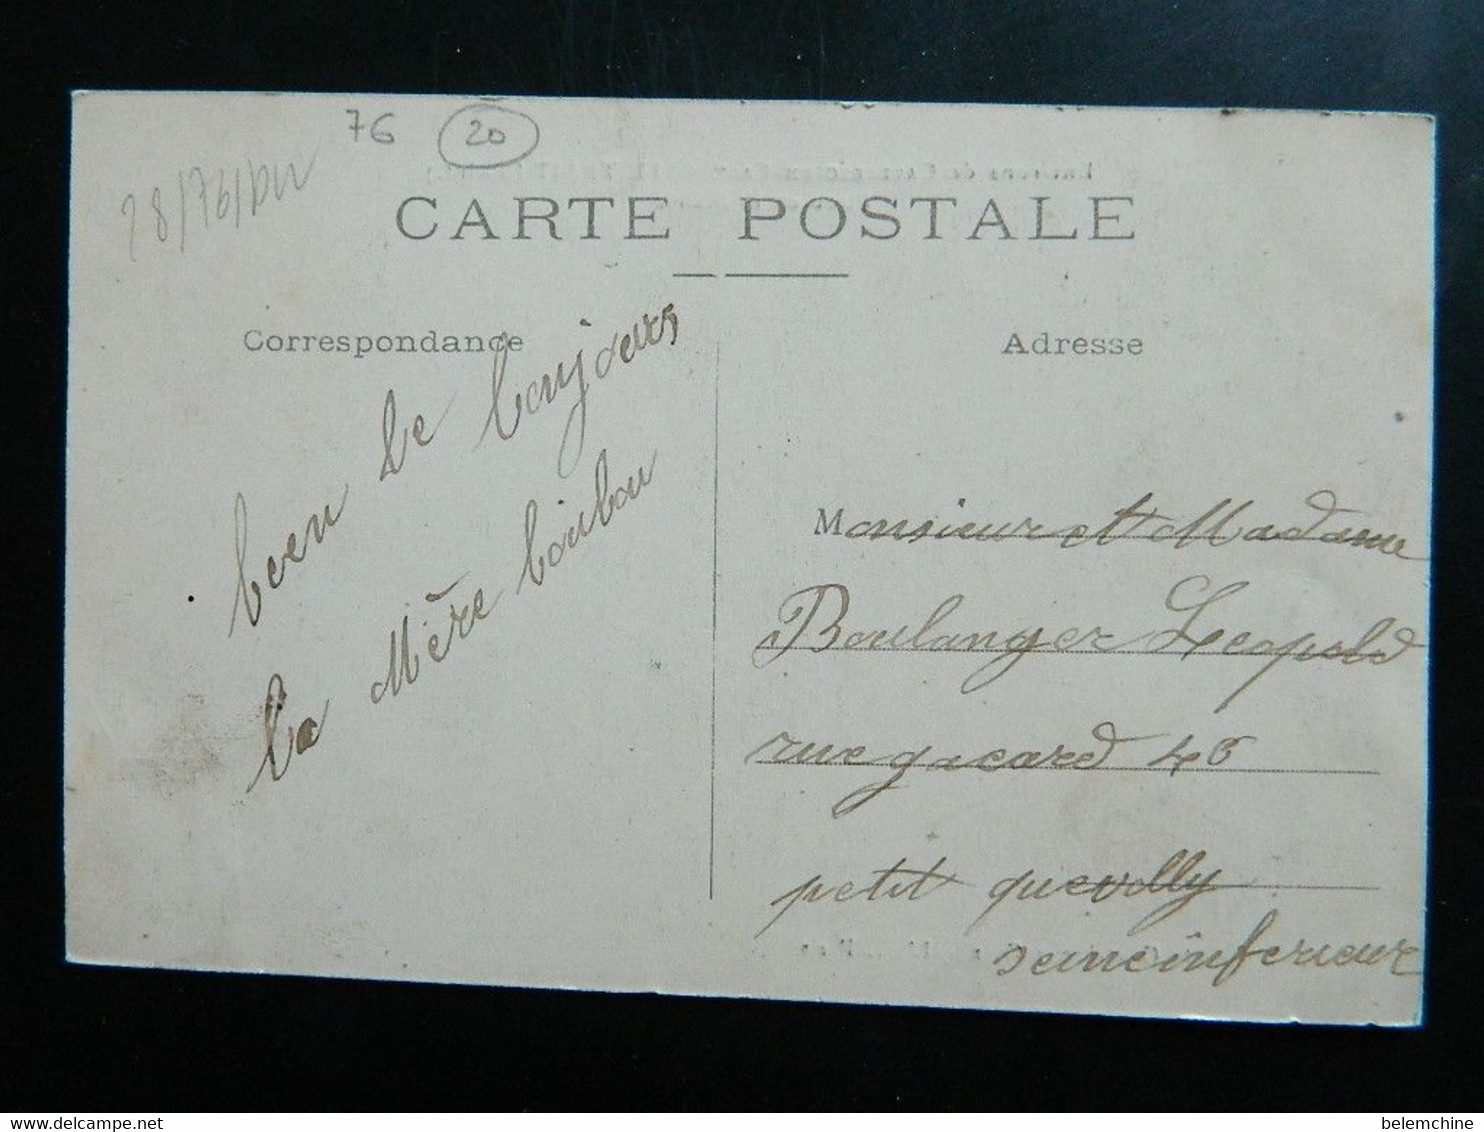 76 20
CARTE POSTALE
Correspondance
Adresse
bien le bonjour
la Mère
Monsieur et Madame
Boulanger Leopold
rue gacard 46
petit quevilly
seineinferieure
delcampe.net
belemchine